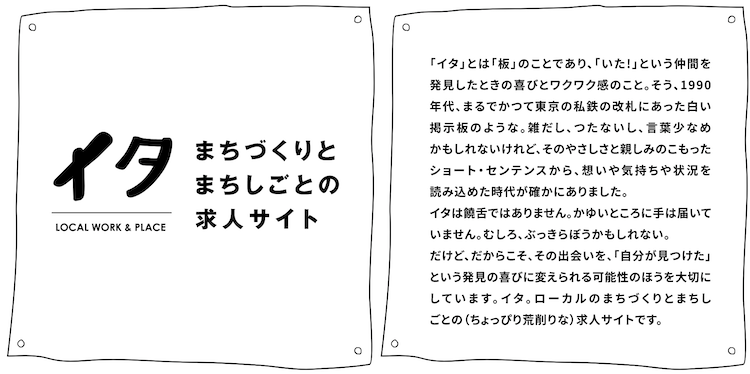 イタ
LOCAL WORK & PLACE
まちづくりと
まちしごとの
求人サイト
「イタ」とは「板」のことであり、「いた！」という仲間を
発見したときの喜びとワクワク感のこと。そう、1990
年代、まるでかつて東京の私鉄の改札にあった白い
掲示板のような。雑だし、つたないし、言葉少なめ
かもしれないけれど、そのやさしさと親しみのこもった
ショート・センテンスから、想いや気持ちや状況を
読み込めた時代が確かにありました。
イタは饒舌ではありません。かゆいところに手は届いて
いません。むしろ、ぶっきらぼうかもしれない。
だけど、だからこそ、その出会いを、「自分が見つけた」
という発見の喜びに変えられる可能性のほうを大切に
しています。イタ。ローカルのまちづくりとまちし
ごとの（ちょっぴり荒削りな）求人サイトです。